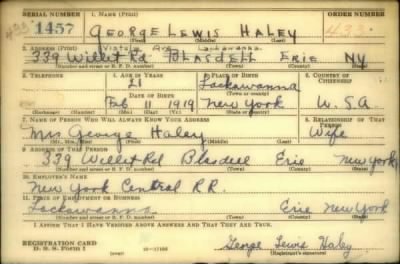 SERIAL NUMBER 1. NAME (Print) ORDER NUMBER
1457 GEORGE LEWIS HALEY 433
(First) (Middle) (Last)
2. ADDRESS (Print)
339 Willet Rd BLASDELL ERIE NY
(Number and street or R. F. D. number) (Town) (County) (State)
3. TELEPHONE 4. AGE IN YEARS 5. PLACE OF BIRTH 6. COUNTRY OF CITIZENSHIP
21 Lackawanna
DATE OF BIRTH (Town or county)
Feb 11 1919 New York U.S.A
(Exchange) (No.) (Mo.) (Day) (Yr.) (State or country)
7. NAME OF PERSON WHO WILL ALWAYS KNOW YOUR ADDRESS 8. RELATIONSHIP OF THAT PERSON
Mrs George Haley Wife
(Mr., Mrs., Miss) (First) (Middle) (Last)
9. ADDRESS OF THAT PERSON
339 Willet Rd Blasdell Erie New York
(Number and street or R. F. D. number) (Town) (County) (State)
10. EMPLOYER'S NAME
New York Central R.R.
11. PLACE OF EMPLOYMENT OR BUSINESS
Lackawanna Erie New York
(Number and street or R. F. D. number) (Town) (County) (State)
I AFFIRM THAT I HAVE VERIFIED ABOVE ANSWERS AND THAT THEY ARE TRUE.
REGISTRATION CARD
D. S. S. Form 1 George Lewis Haley
(Registrant's signature)